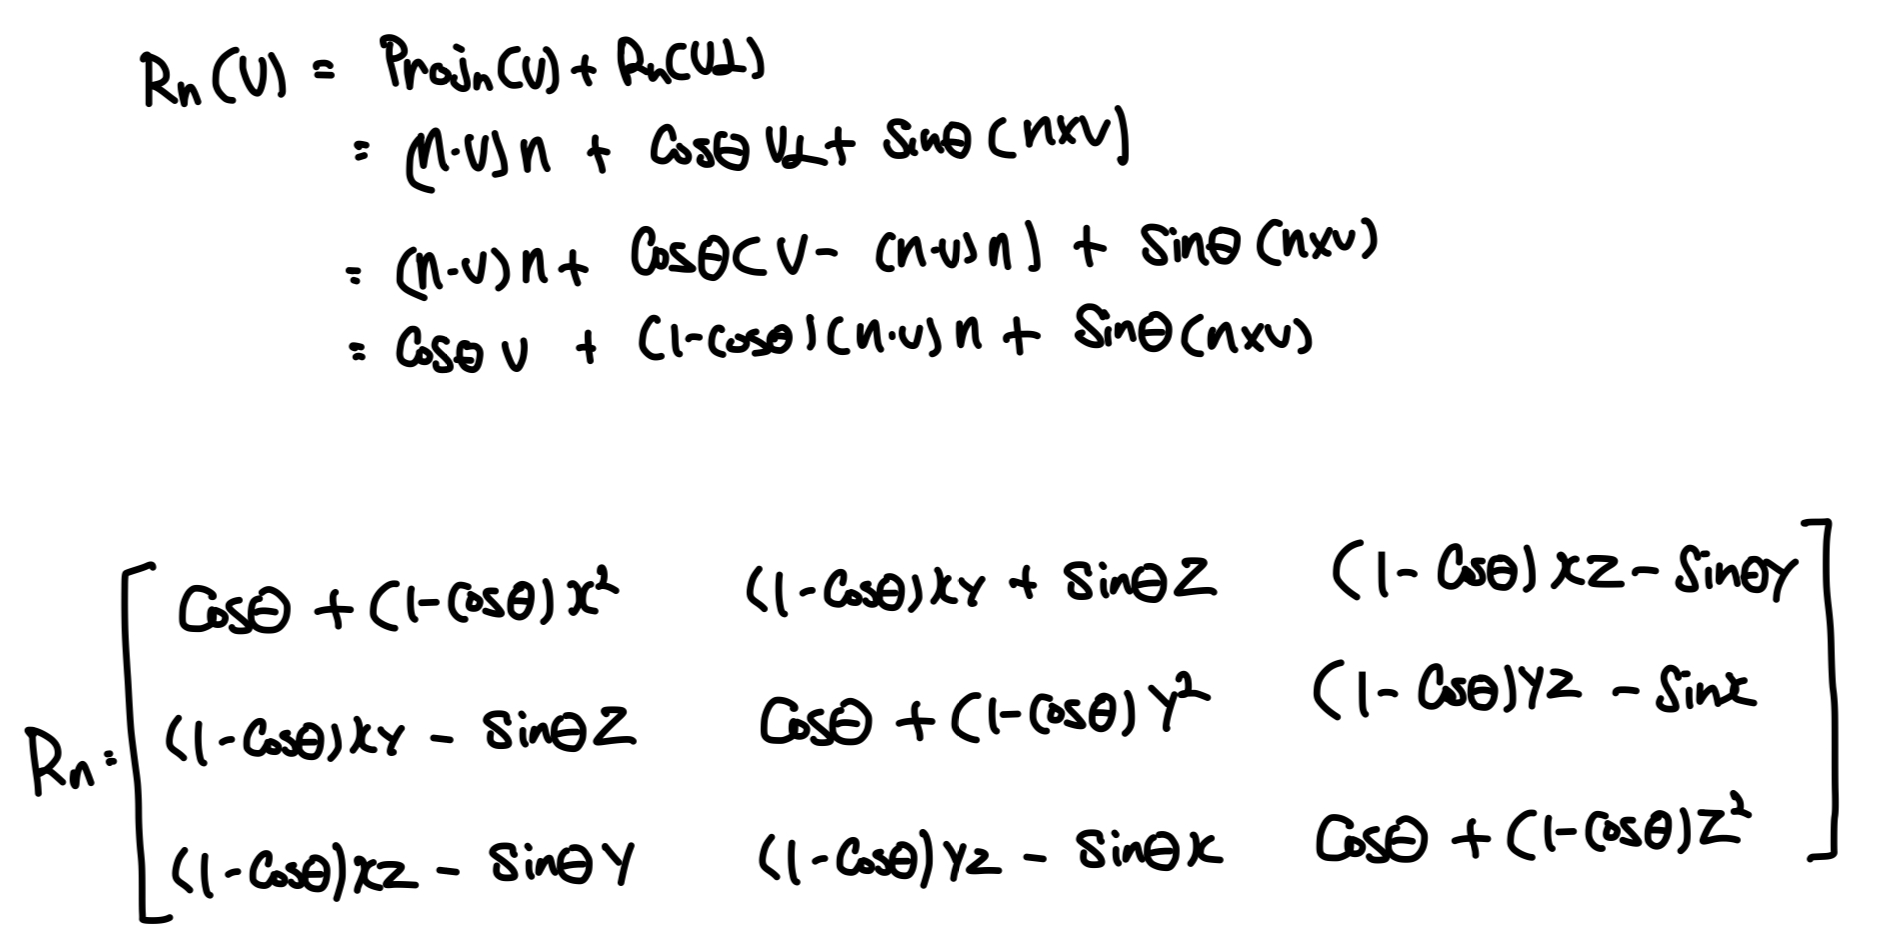 Rn(V) = Projn(V) + Rn(V⊥)
= (n·v)n + Cosθ V⊥ + Sinθ (n×v)
= (n·v)n + Cosθ(V - (n·v)n) + Sinθ (n×v)
= Cosθ V + (1-Cosθ)(n·v)n + Sinθ(n×v)
Cosθ + (1-Cosθ)x² (1-Cosθ)xy + Sinθz (1-Cosθ)xz - Sinθy
Rn= (1-Cosθ)xy - Sinθz Cosθ + (1-Cosθ)y² (1-Cosθ)yz - Sinx
(1-Cosθ)xz - Sinθy (1-Cosθ)yz - Sinθx Cosθ + (1-Cosθ)z²